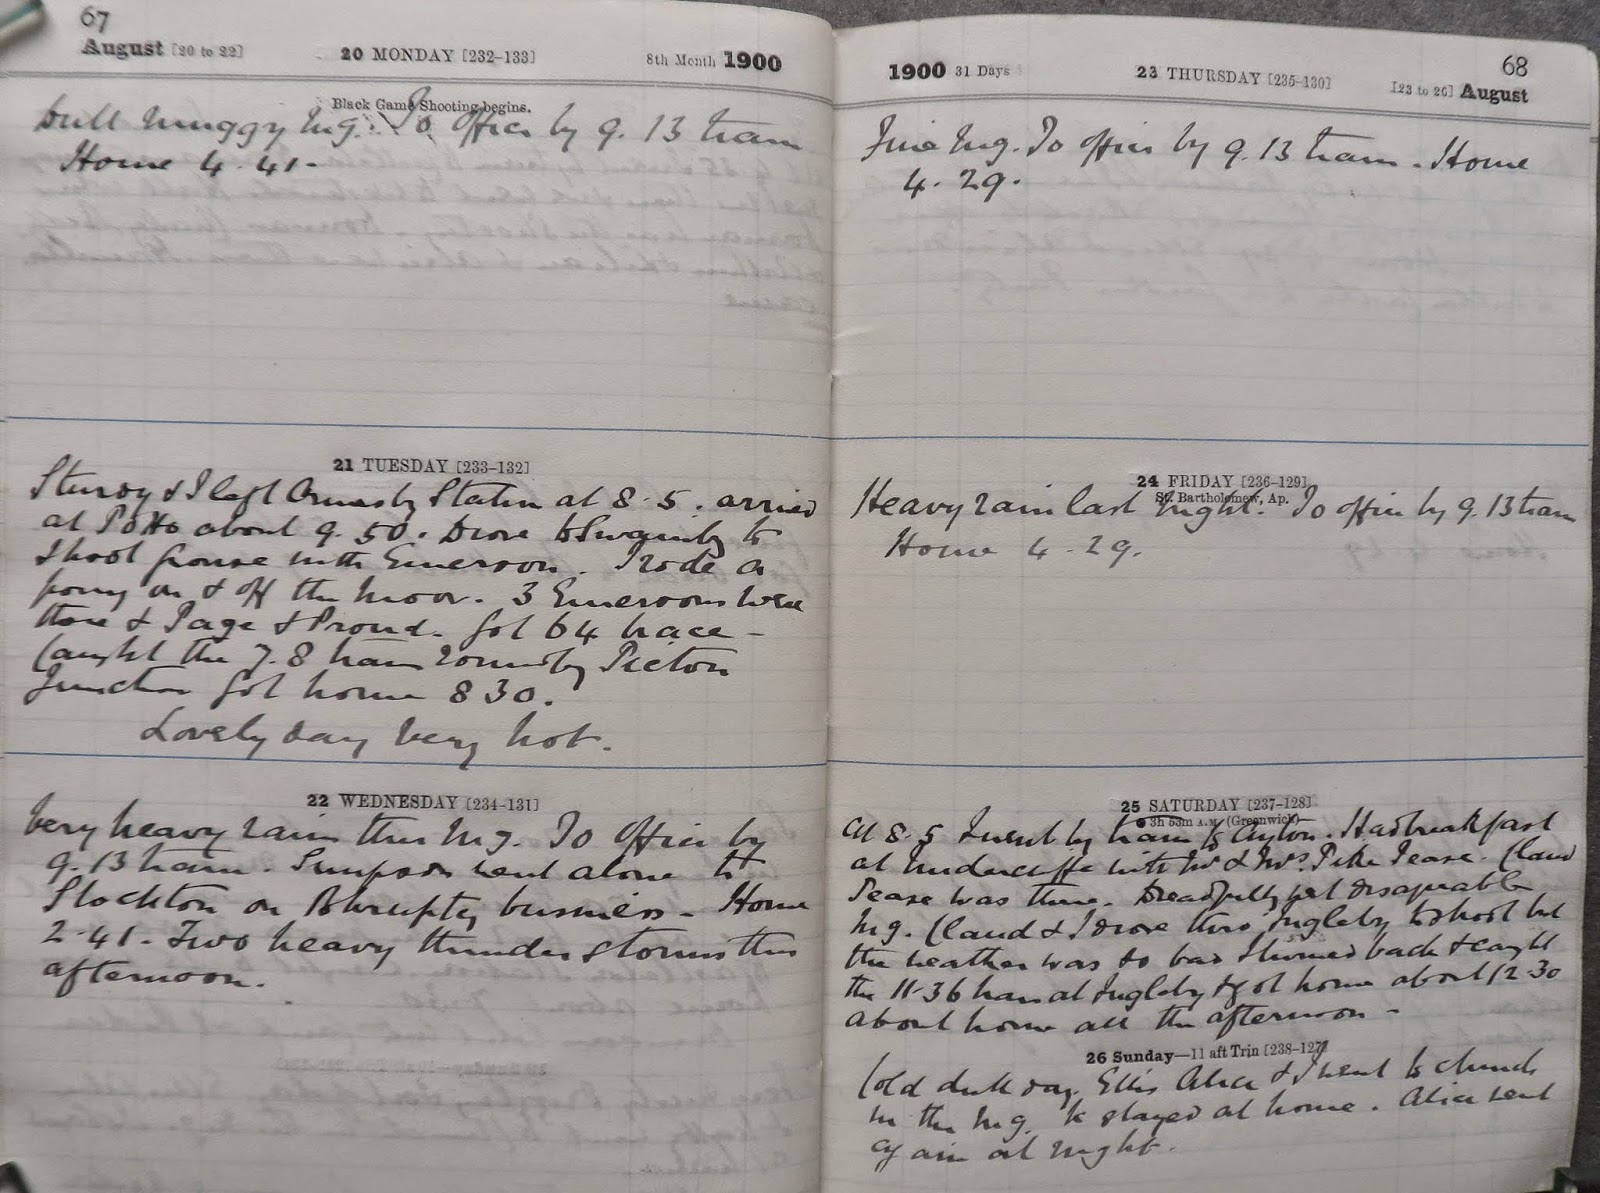 67
August [20 to 22]
20 MONDAY [232-133]
8th Month 1900
Black Game Shooting begins.
Dull muggy mg. To office by 9.13 train
Home 4.41-
21 TUESDAY [233-132]
Sturdy & I left Ormesby Station at 8.5. arrived
at Potto about 9.50. Drove to Swainby to
shoot grouse with Emerson. I rode a
pony on & off the moor. 3 Emersons were
there & Page & Proud. Got 64 brace -
Caught the 7.8 train Picton
Junction Got home 8 30.
Lovely day very hot.
22 WEDNESDAY [234-131]
Very heavy rain this mg. To office by
9.13 train. Simpson went alone to
Stockton on business - Home
2.41. Two heavy thunder storms this
afternoon.
1900 31 Days
23 THURSDAY [235-130]
68
[23 to 26] August
Fine mg. To office by 9.13 train - Home
4.29.
24 FRIDAY [236-129]
St. Bartholomew, Ap.
Heavy rain last night. To office by 9.13 train
Home 4.29.
25 SATURDAY [237-128]
● 3h 53m A.M. (Greenwich)
At 8.5 I went by train to Ayton. Had breakfast
at Undercliffe with Mr & Mrs. Pike Pease. Claud
Pease was there. Dreadfully wet disagreeable
mg. Claud & I drove thro' Ingleby to shoot but
the weather was so bad I turned back & caught
the 11.36 train at Ingleby & got home about 12.30
About home all the afternoon -
26 Sunday—11 aft Trin [238-127]
Cold dull day. Ellis Alice & I went to church
in the mg. stayed at home. Alice went
again at night.